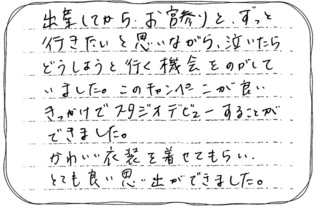 出産してから、お宮参りと、ずっと
行きたいと思いながら、泣いたら
どうしようと行く機会をのがして
いました。このキャンペーンが良い
きっかけでスタジオデビューすることが
できました。
かわいい衣装を着せてもらい、
とても良い思い出ができました。